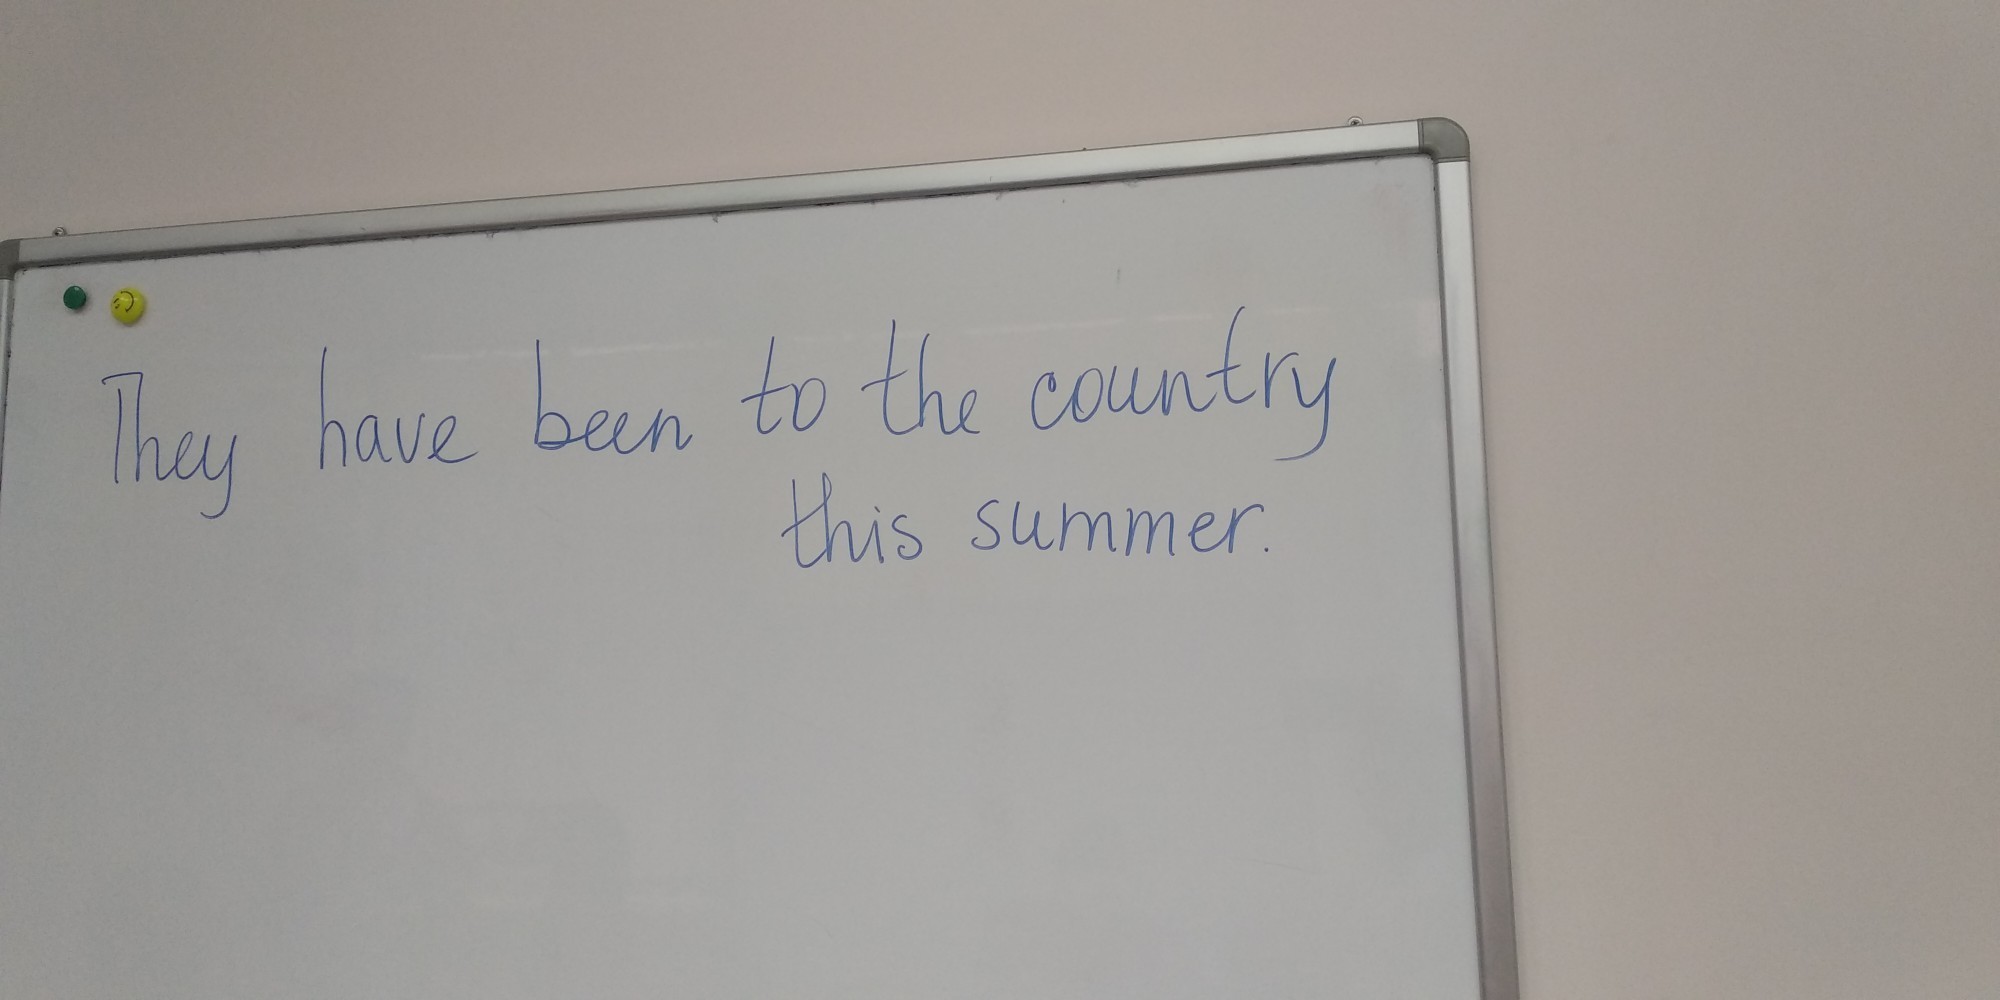 They have been to the country
this summer.